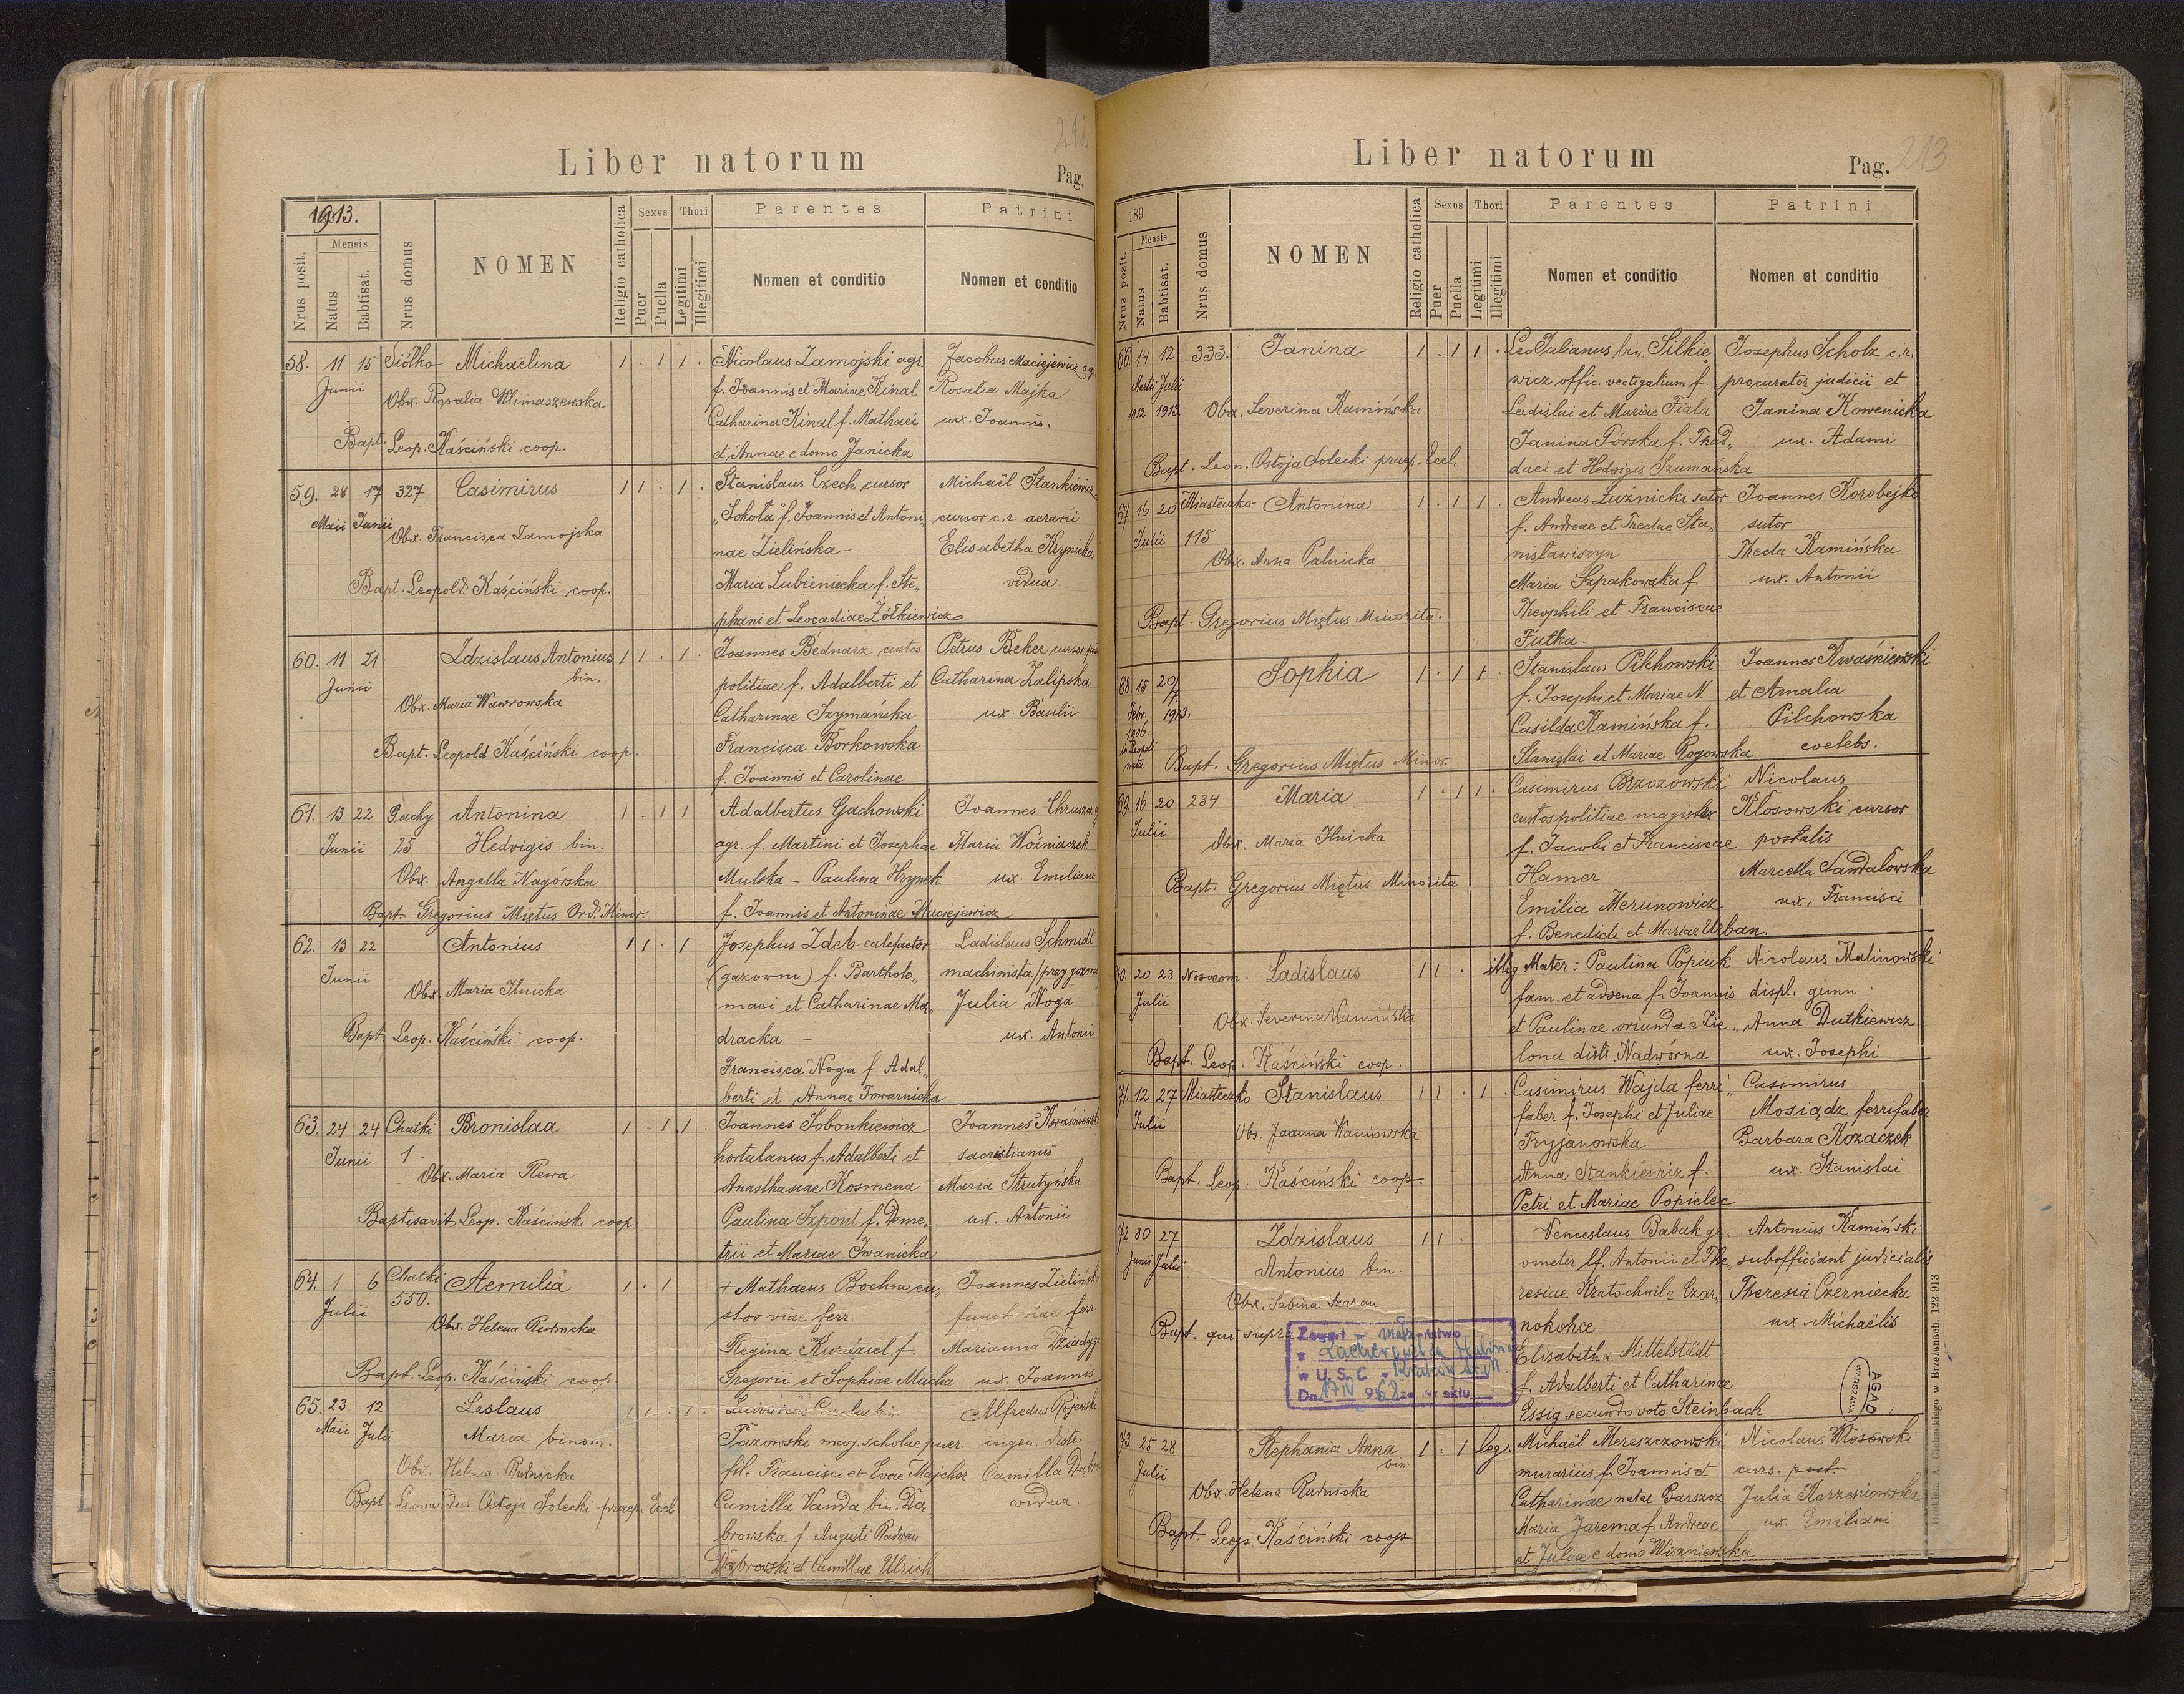 212
Liber natorum
Pag.
1913.
Nrus posit.
Mensis
Natus
Babtisat.
Nrus domus
NOMEN
Religio catholica
Sexus
Puer
Puella
Thori
Legitimi
Illegitimi
Parentes
Nomen et conditio
Patrini
Nomen et conditio
58. 11 15 Siółko Michaëlina 1 . 1 1 . Nicolaus Zamojski agr. Jacobus Maciejewicz agr.
Junii f. Joannis et Mariae Kinal Rosalia Majka
Obx. Rosalia Klimaszewska Catharina Kinal f. Mathaei ux. Joannis.
Bapt. Leop. Kaściński coop. et Annae e domo Janicka
59. 28 17 327 Casimirus 1 1 . 1 . Stanislaus Czech cursor Michaël Stankiewicz
Maii Junii „Sokoła" f. Joannis et Antoni„ cursor c.r. aerarii
Obx. Francisca Zamojska nae Zielińska - Elisabetha Krynicka
Bapt. Leopold. Kaściński coop. Maria Lubieniecka f. Ste„ vidua.
phani et Leocadiae Żółkiewicz
60. 11 21 Zdzislaus Antonius 1 1 . 1 . Joannes Bednarz custos Petrus Beker cursor
Junii bin. politiae f. Adalberti et Catharina Zalipska
Obx. Maria Wawrowska Catharinae Szymańska ux. Basilii
Bapt. Leopold Kaściński coop. Francisca Borkowska
f. Joannis et Carolinae
61. 13 22 Gachy Antonina 1 . 1 1 Adalbertus Gachowski Joannes
Junii 25 Hedvigis bin. agr. f. Martini et Josephae Maria Woźniaczek
Obx. Angella Nagórska Mulska - Paulina Hrynek ux. Emiliani
Bapt. Gregorius Miętus Ord. Minor. f. Joannis et Antoninae Maciejewicz
62. 13 22 Antonius 1 1 . 1 Josephus Zdeb calefactor Ladislaus Schmidt
Junii (gazowni) f. Bartholo„ machinista
Obx. Maria Ilnicka maei et Catharinae Ma„ Julia Noga
Bapt. Leop. Kaściński coop. dracka - ux. Antonii
Francisca Noga f. Adal„
berti et Annae Towarnicka
63. 24 24 Chatki Bronislaa 1 . 1 1 . Joannes Sobonkiewicz Joannes
Junii 1. hortulanus f. Adalberti et sacristianus
Obx. Maria Rewa Anasthasiae Kosmena Maria Strutyńska
Baptisavit Leop. Kaściński coop. Paulina Szpont f. Deme„ ux. Antonii
trii et Mariae Iwanicka
64. 1 6 Chatki Aemilia 1 . 1 + Mathaeus Bochnu cu„ Joannes Zieliński
Julii 550. stos viae ferr. funct. viae ferr.
Obx. Helena Rudnicka Regina f. Marianna
Bapt. Leop. Kaściński coop. Gregorii et Sophiae Mucha ux. Joannis
65. 23 12 Leslaus 1 1 . 1 . Carolus bin. Alfredus
Maii Julii Maria binom. Pazowski mag. scholae puer. ingen. distr.
Obx. Helena Rudnicka fil. Francisci et Evae Majcher Camilla
Bapt. Leonardus Ostoja Solecki praep. Eccl. Camilla Vanda bin. Dą„ vidua.
browska f. Augusti Radwan
Dąbrowski et Camillae Ulrich
Liber natorum
Pag. 213
189
Nrus posit.
Mensis
Natus
Babtisat.
Nrus domus
NOMEN
Religio catholica
Sexus
Puer
Puella
Thori
Legitimi
Illegitimi
Parentes
Nomen et conditio
Patrini
Nomen et conditio
66. 14 12 333. Janina 1 . 1 1 . Leo Julianus bin. Silkie„ Josephus Scholz c.r.
Martii Julii wicz offic. vectigalium f. procurator judicii et
1912 1913. Obx. Severina Kamińska Ladislai et Mariae Fiala Janina Kowenicka
Janina Górska f. Thad„ ux. Adami
Bapt. Leon. Ostoja Solecki praep. Eccl. daei et Hedvigis Szumańska
67. 16 20 Miasteczko Antonina 1 . 1 1 . Andreas Luźnicki sutor Joannes Korobejko
Julii 115 f. Andreae et Theclae Sta„ sutor
Obx. Anna Palnicka nisławiszyn Thecla Kamińska
Maria Szpakowska f. ux. Antonii
Bapt. Gregorius Miętus Minorita. Theophili et Franciscae
Futka.
68. 15 20/7 Sophia 1 . 1 1 . Stanislaus Pilchowski Joannes Kwaśniewski
Febr. 1913. f. Josephi et Mariae N. et Amalia
1906. Casilda Kamińska f. Pilchowska
in Leopoli nata Bapt. Gregorius Miętus Minor. Stanislai et Mariae Rogowska coelebs.
69. 16 20 234 Maria 1 . 1 1 . Casimirus Brzozowski Nicolaus
Julii custos politiae magistr. Kłosowski cursor
Obx. Maria Ilnicka f. Jacobi et Franciscae postalis
Bapt. Gregorius Miętus Minorita Hamer Marcella Sandałowska
Emilia Merunowicz ux. Francisci
f. Benedicti et Mariae Urban.
70. 20 23 Nosocom. Ladislaus 1 1 . illeg Mater: Paulina Popiuk Nicolaus Malinowski
Julii fam. et advena f. Joannis displ. gimn.
Obx. Severina Kamińska et Paulinae oriunda e Zie„ Anna Dutkiewicz
Bapt. Leop. Kaściński coop. lona distr. Nadwórna ux. Josephi
71. 12 27 Miasteczko Stanislaus 1 1 . 1 . Casimirus Wajda ferri„ Casimirus
Julii faber f. Josephi et Juliae Mosiądz ferrifaber
Obs. Joanna Kaniowska Fryjanowska Barbara Kozaczek
Bapt. Leop. Kaściński coop. Anna Stankiewicz f. ux. Stanislai
Petri et Mariae Popielec
72. 30 27 Zdzislaus 1 1 . Venceslaus Babak ge„ Antonius Kamiński
Junii Julii Antonius bin. ometer f. Antonii et The„ subofficiant judicialis
Obx. Sabina Szaran resiae Kratochwil e Czar„ Theresia Czerniecka
Bapt. qui supra nokońce ux. Michaëlis
Elisabetha Mittelstädt
f. Adalberti et Catharinae
Essig secundo voto Steinbach
Zawarł małżeństwo
z
w U.S.C. Kraków
Dn. 17 IV 1968 nr aktu
AGAD
WARSZAWA
73. 25 28 Stephania Anna 1 . 1 leg. Michaël Mereszczowski Nicolaus Kłosowski
Julii bin murarius f. Joannis et curs. post.
Obx. Helena Rudnicka Catharinae natae Barszcz Julia Korzeniowska
Maria Jarema f. Andreae ux. Emiliani
Bapt. Leop. Kaściński coop et Juliae e domo Wiszniewska
Drukiem A. Głabockiego w Brzeżanach. 122-913